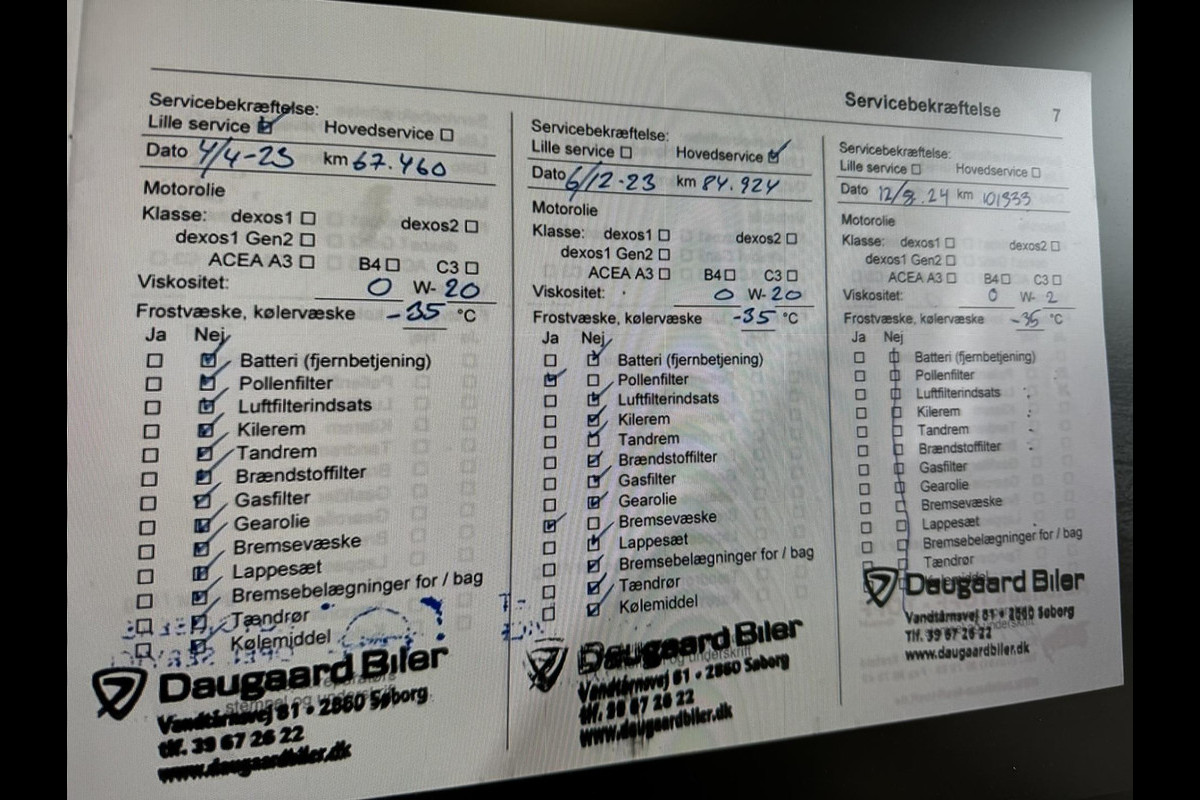 Servicebekræftelse 7
Servicebekræftelse:
Lille service Hovedservice
Dato 4/4-23 km 67.460
Motorolie
Klasse: dexos1 dexos2
dexos1 Gen2
ACEA A3 B4 C3
Viskositet: 0 W-20
Frostvæske, kølervæske -35 °C
Ja Nej
Batteri (fjernbetjening)
Pollenfilter
Luftfilterindsats
Kilerem
Tandrem
Brændstoffilter
Gasfilter
Gearolie
Bremsevæske
Lappesæt
Bremsebelægninger for / bag
Tændrør
Kølemiddel
Daugaard Biler
Vandtårnsvej 81 • 2860 Søborg
tlf. 39 67 26 22
www.daugaardbiler.dk
Servicebekræftelse:
Lille service Hovedservice
Dato 6/12-23 km 84.924
Motorolie
Klasse: dexos1 dexos2
dexos1 Gen2
ACEA A3 B4 C3
Viskositet: 0 W-20
Frostvæske, kølervæske -35 °C
Ja Nej
Batteri (fjernbetjening)
Pollenfilter
Luftfilterindsats
Kilerem
Tandrem
Brændstoffilter
Gasfilter
Gearolie
Bremsevæske
Lappesæt
Bremsebelægninger for / bag
Tændrør
Kølemiddel
Daugaard Biler
og underskrift
Vandtårnsvej 81 • 2860 Søborg
tlf. 39 67 26 22
www.daugaardbiler.dk
Servicebekræftelse:
Lille service Hovedservice
Dato 24 km
Motorolie
Klasse: dexos1 dexos2
dexos1 Gen2
ACEA A3 B4 C3
Viskositet: 0 W- 2
Frostvæske, kølervæske -35 °C
Ja Nej
Batteri (fjernbetjening)
Pollenfilter
Luftfilterindsats
Kilerem
Tandrem
Brændstoffilter
Gasfilter
Gearolie
Bremsevæske
Lappesæt
Bremsebelægninger for / bag
Tændrør
Daugaard Biler
Vandtårnsvej 81 • 2860 Søborg
Tlf. 39 67 26 22
www.daugaardbiler.dk